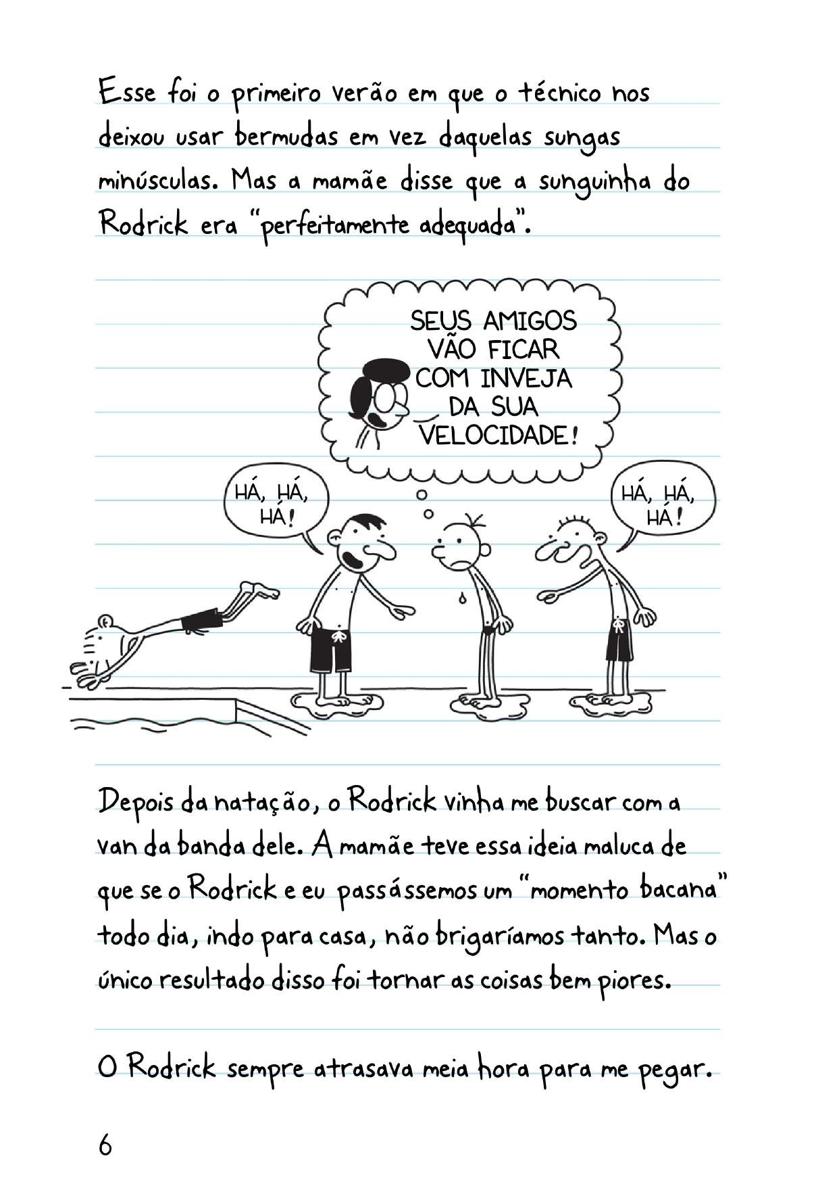 Esse foi o primeiro verão em que o técnico nos
deixou usar bermudas em vez daquelas sungas
minúsculas. Mas a mamãe disse que a sunguinha do
Rodrick era “perfeitamente adequada”.
SEUS AMIGOS
VÃO FICAR
COM INVEJA
DA SUA
VELOCIDADE!
HÁ, HÁ,
HÁ!
HÁ, HÁ,
HÁ!
Depois da natação, o Rodrick vinha me buscar com a
van da banda dele. A mamãe teve essa ideia maluca de
que se o Rodrick e eu passássemos um “momento bacana”
todo dia, indo para casa, não brigaríamos tanto. Mas o
único resultado disso foi tornar as coisas bem piores.
O Rodrick sempre atrasava meia hora para me pegar.
6